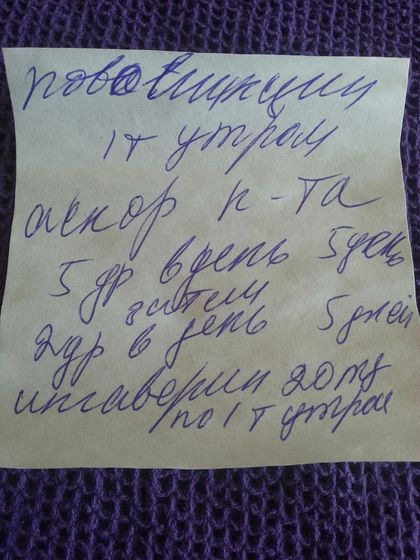 1т утром
аскор к-та
5 др в день 5 день
затем
2 др в день 5 дней
ингаверин 20 mg
по 1 т утром